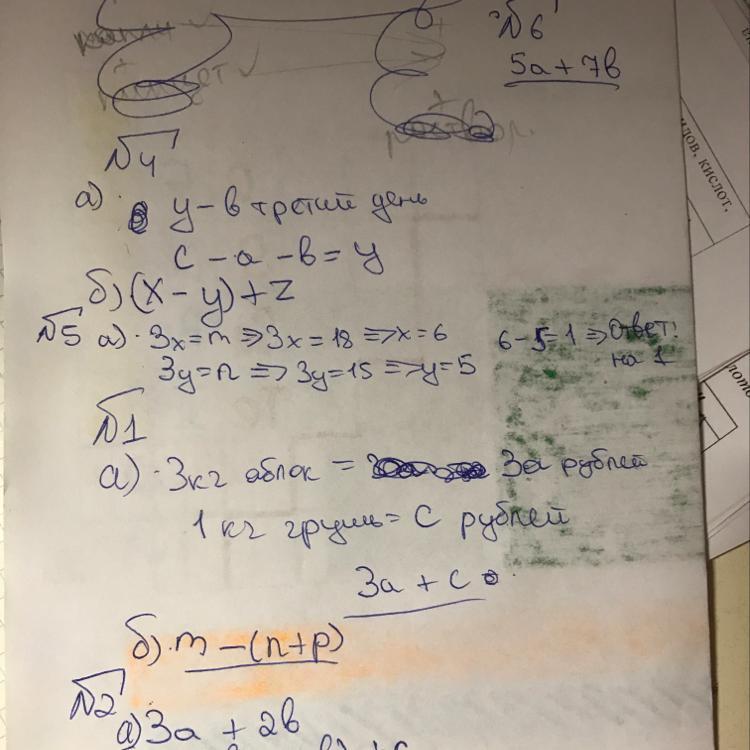 №6
5a + 7b
№4
а) y – в третий день
c – a – b = y
б) (x – y) + z
№5 а) 3x = m => 3x = 18 => x = 6
6 – 5 = 1 => Ответ:
на 1
3y = n => 3y = 15 => y = 5
№1
а) 3кг яблок = 3a рублей
1 кг груш = c рублей
3a + c
б) m – (n + p)
№2
а) 3a + 2b
идов, кислот,